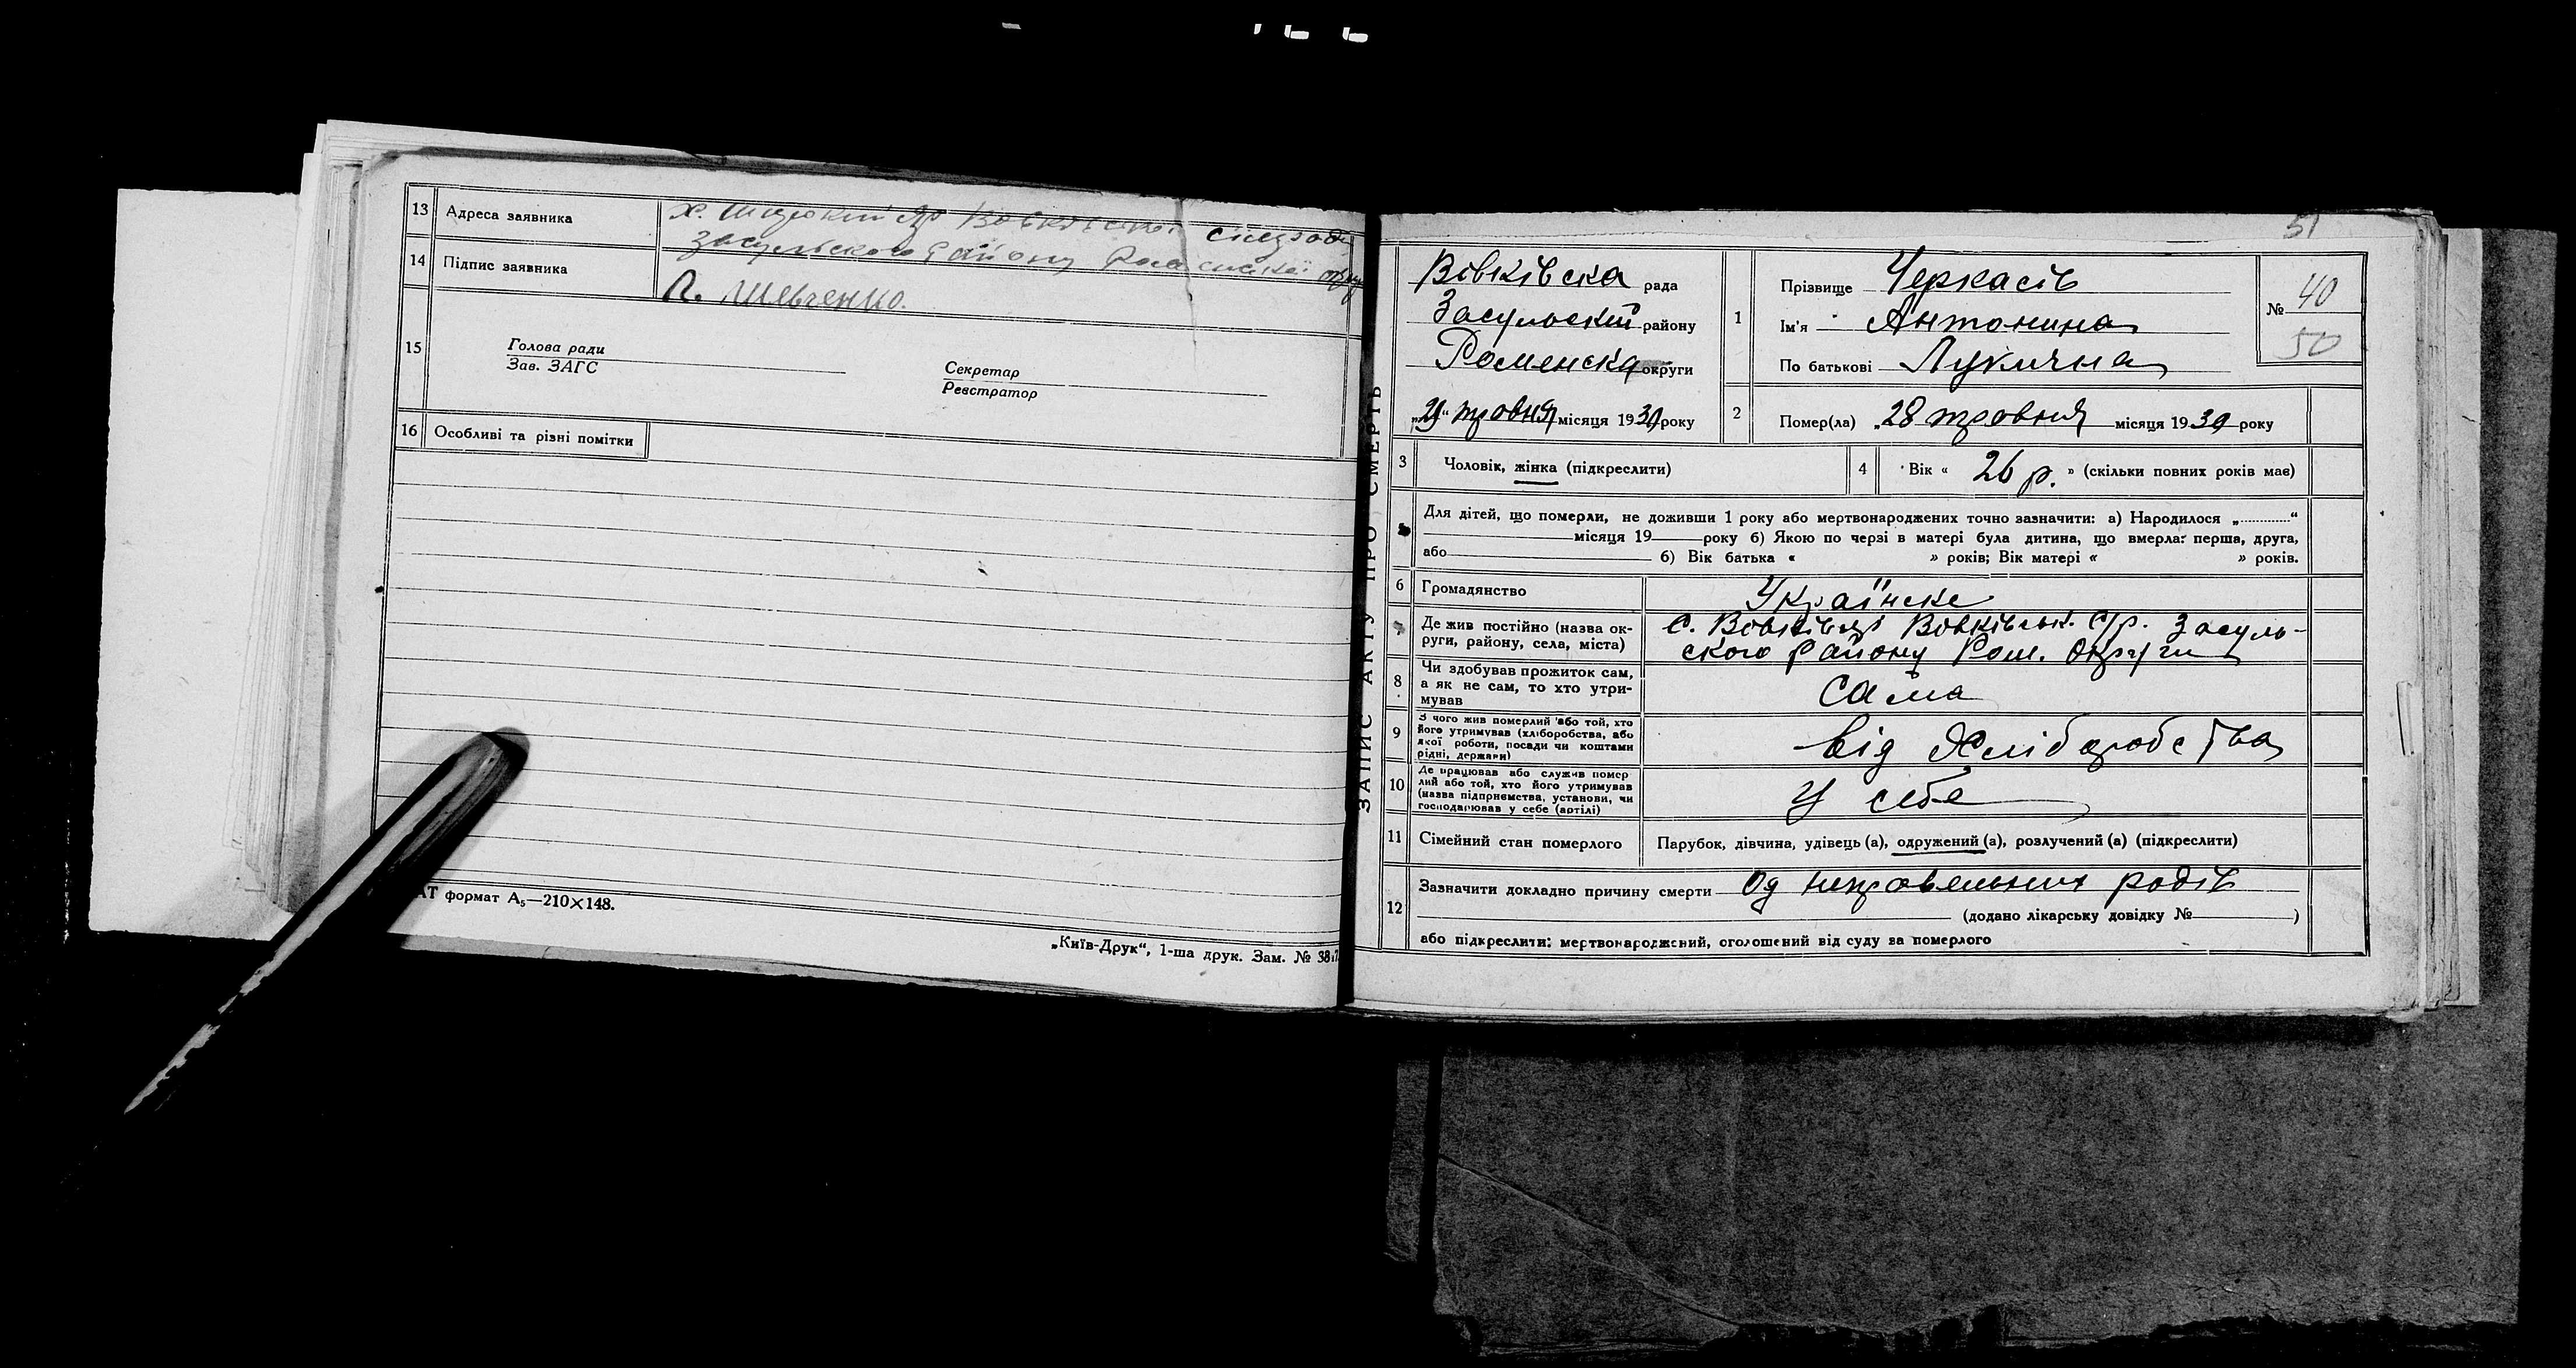 13 Адреса заявника
14 Підпис заявника Л. Шевченко.
15 Голова ради
Зав. ЗАГС
Секретар
Реєстратор
16 Особливі та різні помітки
АТ формат А₅—210×148.
„Київ-Друк“, 1-ша друк. Зам. №
ЗАПИС АКТУ ПРО СМЕРТЬ
51
Вовківска рада
Засульский району
Роменска округи
„29“ травня місяця 1930 року
1 Прізвище Черкасів
Ім'я Антонина
По батькові Лукична
№ 40
50
2 Помер(ла) „28 травня місяця 1930 року
3 Чоловік, жінка (підкреслити)
4 Вік « 26 р. » (скільки повних років має)
Для дітей, що померли, не доживши 1 року або мертвонароджених точно зазначити: а) Народилося „ “
місяця 19 року б) Якою по черзі в матері була дитина, що вмерла: перша, друга,
або б) Вік батька « » років; Вік матері « » років.
6 Громадянство Українське
7 Де жив постійно (назва ок-
руги, району, села, міста)
С. Вовківці Вовківськ. С/р. Засуль-
ского району Ром. Округи
8 Чи здобував прожиток сам,
а як не сам, то хто утри-
мував
Сама
9 З чого жив померлий або той, хто
його утримував (хліборобства, або
якої роботи, посади чи коштами
рідні, держави)
від Хліборобства
10 Де працював або служив помер
лий або той, хто його утримував
(назва підприємства, установи, чи
господарював у себе (артілі)
У себе
11 Сімейний стан померлого Парубок, дівчина, удівець (а), одружений (а), розлучений (а) (підкреслити)
12 Зазначити докладно причину смерти Од неправельних родів
(додано лікарську довідку № )
або підкреслити: мертвонароджений, оголошений від суду за померлого